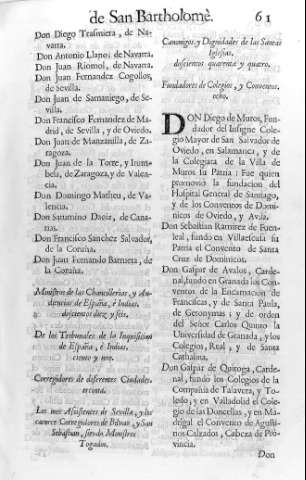 de San Bartholomè. 61
Don Diego Trasmiera, de Na-
varra.
Don Antonio Llanos de Navarra.
Don Juan Riomol, de Navarra.
Don Juan Fernandez Cogollos,
de Sevilla.
Don Juan de Samaniego, de Se-
villa.
Don Francisco Fernandez de Ma-
drid, de Sevilla, y de Oviedo.
Don Juan de Manzanilla, de Za-
ragoza.
Don Juan de la Torre, y
bela, de Zaragoza, y de Valen-
cia.
Don Domingo Matheu, de Va-
lencia.
Don Saturnino Daoiz, de Cana-
rias.
Don Francisco Sanchez Salvador,
de la Coruña.
Don Juan Fernando Barrueta, de
la Coruña.
Ministros de las Chancillerias, y Au-
diencias de España, è Indias,
doscientos diez y seis.
De los Tribunales de la Inquisicion
de España, è Indias,
ciento y uno.
Corregidores de diferentes Ciudades,
Los mas Assistentes de Sevilla, y los
Corregidores de Bilbao, y San
Sebastian, siendo Ministros
Togados.
Canonigos, y Dignidades de las Santas
Iglesias,
doscientos quarenta y quatro.
Fundadores de Colegios, y Conventos,
ocho.
DON Diego de Muros, Fun-
dador del Insigne Cole-
gio Mayor de San Salvador de
Oviedo, en Salamanca, y de
la Colegiata de la Villa de
Muros su Patria : Fue quien
promovió la fundacion del
Hospital General de Santiago,
y de los Conventos de Domi-
nicos de Oviedo, y Avila.
Don Sebastian Ramirez de Fuen-
leal, fundó en Villaescusa su
Patria el Convento de Santa
Cruz de Dominicos.
Don Gaspar de Avalos, Carde-
nal, fundó en Granada los Con-
ventos de la Encarnacion de
Franciscas, y de Santa Paula,
de Geronymas ; y de orden
del Señor Carlos Quinto la
Universidad de Granada, y los
Colegios, Real, y de Santa
Cathalina.
Don Gaspar de Quiroga, Carde-
nal, fundó los Colegios de la
Compañia de Talavera, y To-
ledo, y en Valladolid el Cole-
gio de las Doncellas, y en Ma-
drigal el Convento de Agusti-
nos Calzados, Cabeza de Pro-
vincia.
Don